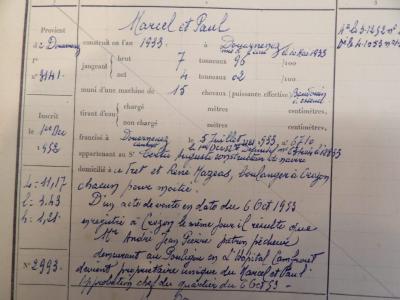 Marcel et Paul
Provient
de Douarnenez construit en l'an 1933 à Douarnenez
n° 3141 jaugeant brut 7 tonneaux 96 /100
net 4 tonneaux 02 /100
muni d'une machine de 15 chevaux (puissance effective Baudouin
Inscrit tirant d'eau chargé mètres centimètres
le 1er Dec non chargé mètres centimètres
1952 francisé à Douarnenez le 5 Juillet 1933 n° 6710
appartenant au Sr Costa Auguste constructeur de navire
domicilié à Tret et René Mazeas, boulanger à Crozon
L = 11,17 chacun pour moitié.
l = 3.43 D'un acte de vente en date du 6 Oct 1953
h = 1,21. enregistré à Crozon le même jour il résulte que
Mr André Jean Pierre patron pêcheur
demeurant au Pouligou en L'Hôpital Camfrout
N° 2993. devient propriétaire unique du Marcel et Paul.
Approbation chef du quartier du 6 Oct 53